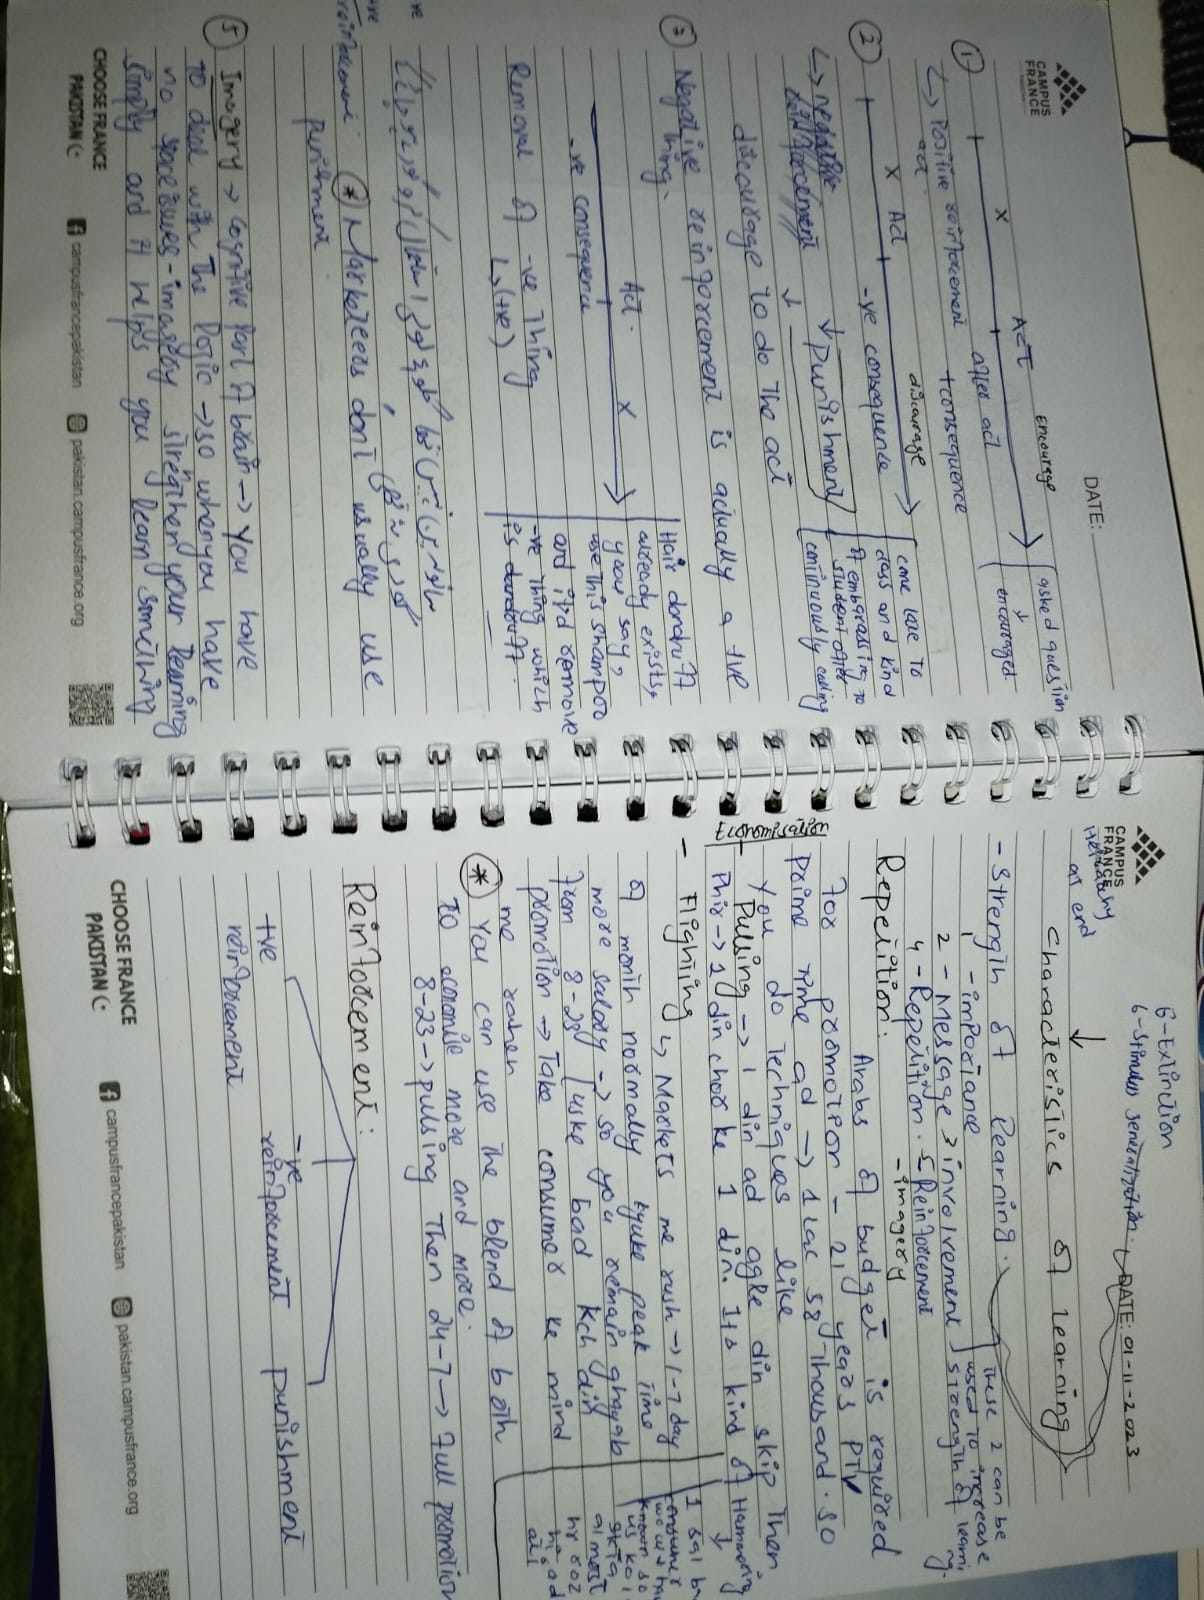 DATE:
CAMPUS
FRANCE
Encourage
X ACT
after act
asked question
encouraged.
1
Positive reinforcement
act
+consequence
discourage
X Act
2
-ve consequence
come late to
class and kind
of embarassing to
student after
continuously calling
negative
reinforcement
Punishment
discourage to do the act
3 Negative reinforcement is actually a +ve
thing.
Act. X
-ve consequence
Removal of -ve thing
(+ve)
Hair dandruff
already exists,
you say,
use this shampoo
and it'd remove
-ve thing which
is dandruff.
ve
+ve
reinforcement
* Marketeers don't usually use
punishment
5 Imagery → Cognitive part of brain → you have
to deal with the logic → so when you have
no space issues - imagery stregthen your learning
simply and it helps you learn something
CHOOSE FRANCE
PAKISTAN
campusfrancepakistan
pakistan.campusfrance.org
6-Extinction
6-Stimulus generalization
CAMPUS
FRANCE
DATE: 01-11-2023
at end
Characteristics of Learning
- Strength of learning.
1 - importance
2 - Message 3 involvement
4 - Repetition. 5 - Reinforcement
- imagery
These 2 can be
used to increase
strength of learning.
Repetition:
Arabs of budget is required
for promotion - 21 years PTV
Prime time ad → 1 lac 58 thousand. So
you do techniques like
Economisation
- Pulsing → 1 din ad agle din skip then
Phir → 1 din chor ke 1 din. Its kind of Hammering
- Flighting
Markets me rush → 1-7 day
of month normally kyuke peak time
more salary → so you remain ghayab
from 8-23 uske bad kch din
promotion → Take consumer ke mind
me rahen
1 sal
consumer
known so
almost
hr roz
hi ad
ati
* You can use the blend of both
to economise more and more.
8-23 → pulsing then 24-7 → full promotion
Reinforcement:
+ve
reinforcement
-ve
reinforcement
punishment
CHOOSE FRANCE
PAKISTAN
campusfrancepakistan
pakistan.campusfrance.org